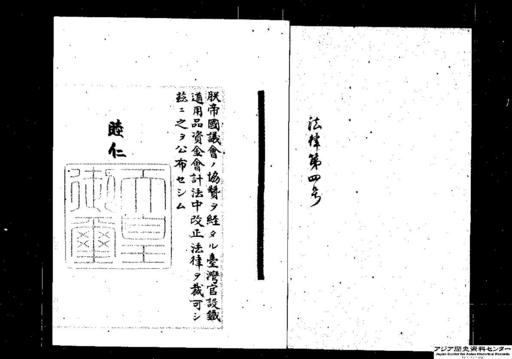 法律第四号
朕帝國議會ノ協贊ヲ経タル臺灣官設鐵
道用品資金會計法中改正法律ヲ裁可シ
茲ニ之ヲ公布セシム
睦仁
天皇
御璽
アジア歴史資料センター
Japan Center for Asian Historical Records